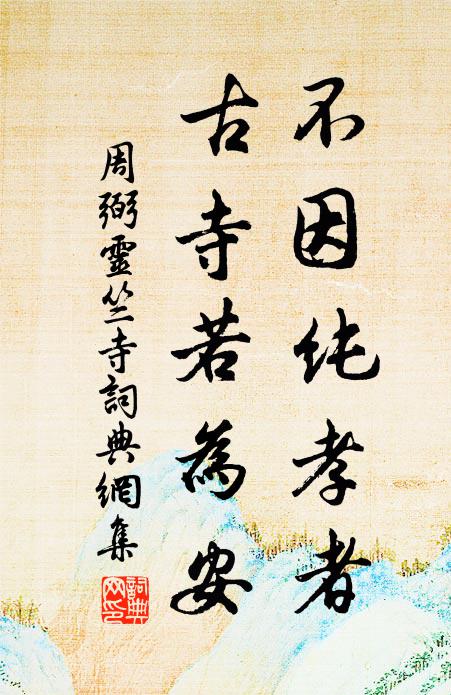 不因純孝者
古寺若為安
周弼靈竺寺詞典網集
詞典網印